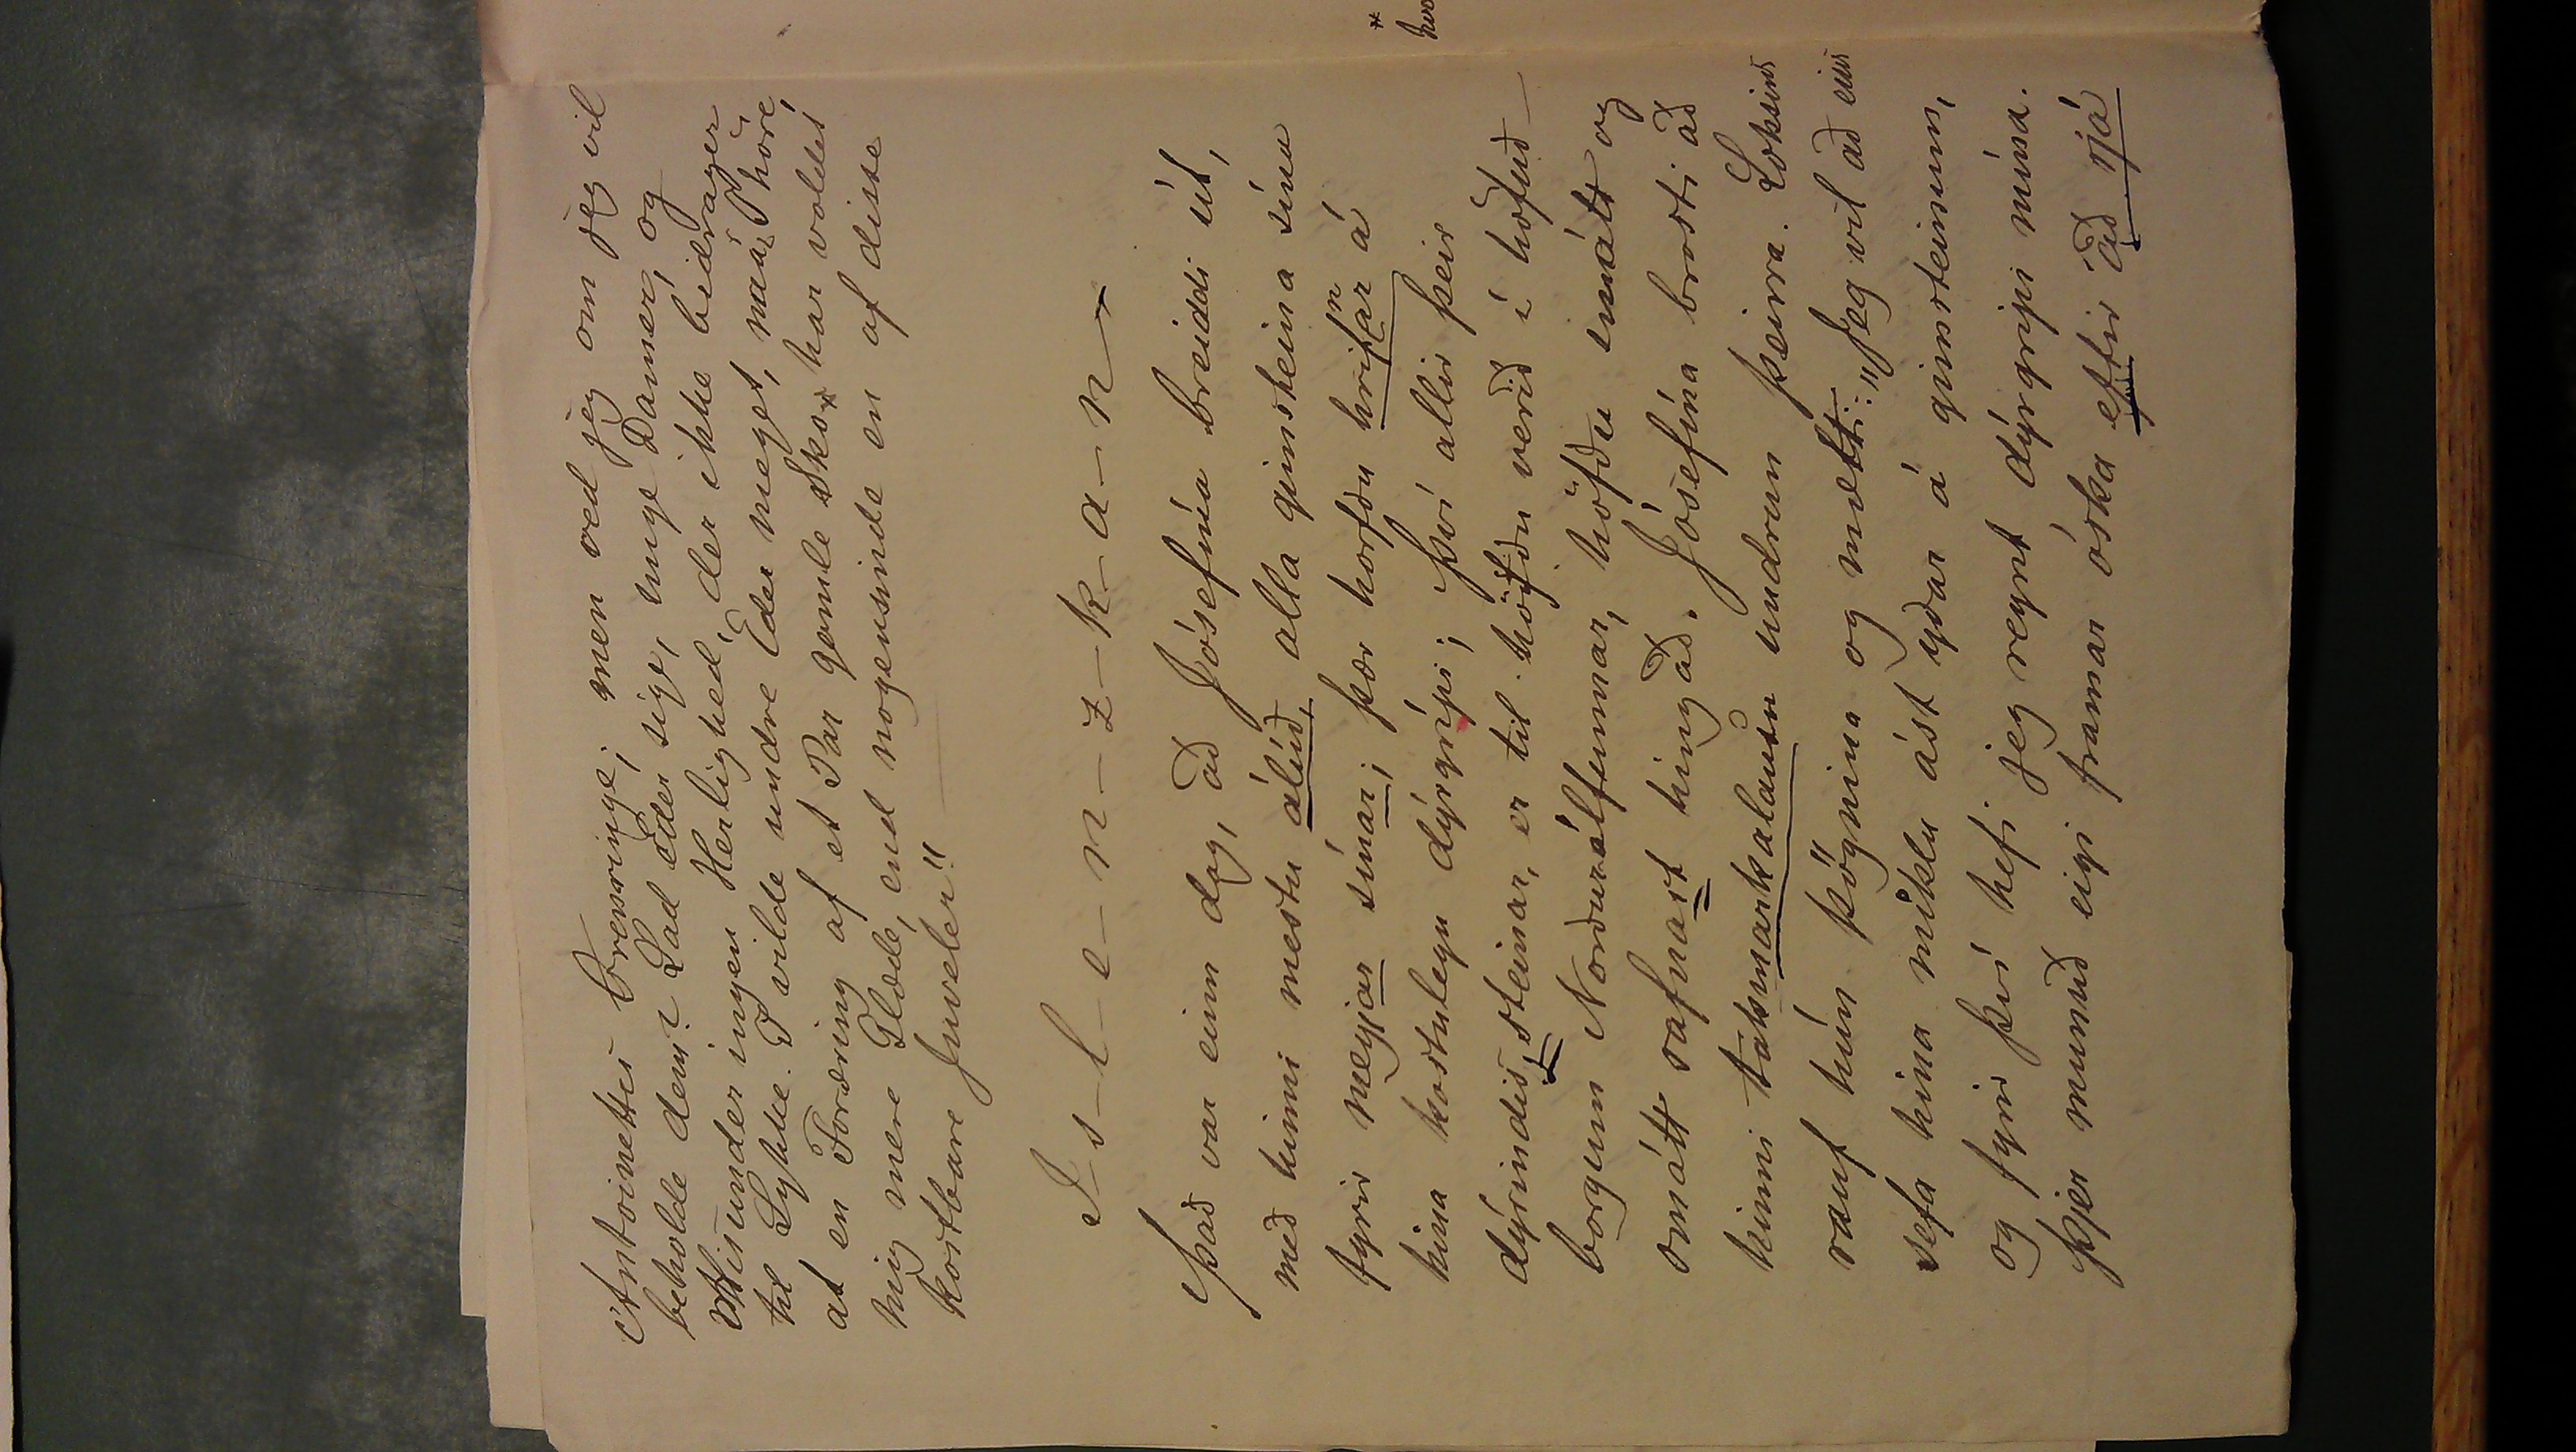 Antoinettes Ørenringe; men ved jeg om jeg vil
beholde dem? Lad Eder sige, unge Damer, og
Misunder ingen Herlighed, der ikke bidrager
til Lykke. I vilde undre Eder meget, naar I höre,
at en Fordring af et Par gamle Sko* har voldet
mig mere Glæde, end nogensinde en af disse
kostbare Juveler!"
I-s-l-e-n-z-k-a-n
Það var einn dag, að Jósefína breiddi út,
með hinni mestu alúð, alla gimsteina sína
fyrir meyjar sínar; þær horfðu hrifnar á
hina kostulegu dýrgripi; því allir þeir
dýrindis steinar, er til höfðu verið í höfuð-
borgum Norðurálfunnar, höfðu smátt og
smátt safnast hingað. Jósefína brosti að
hinni takmarkalausu undrun þeirra. Loksins
rauf hún þögnina og mælti: "Jeg vil að eins
sefa hina miklu ást yðar á gimsteinum,
og fyrir því hefi jeg reynt dýrgripi mína.
Þjer munuð eigi framar óska eftir að sjá
*